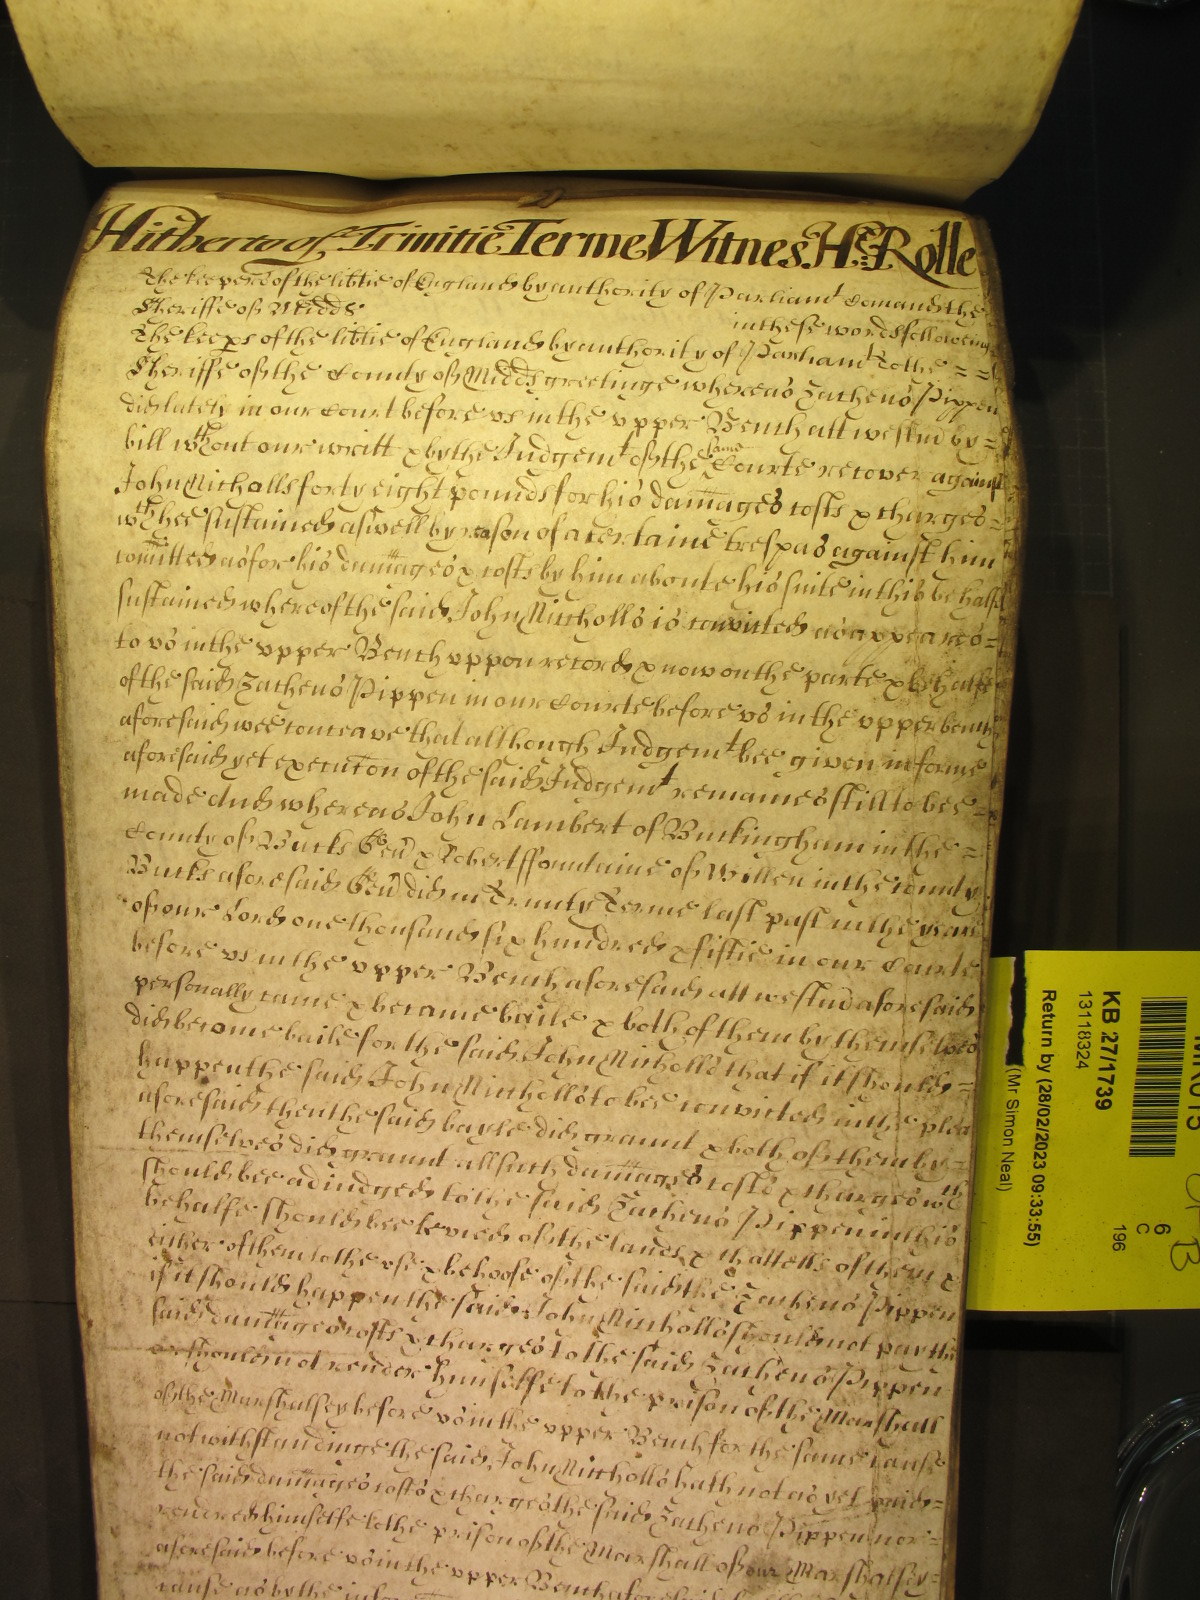 Hitherto of Trinitie Terme Witnes H: Rolle
The keepers of the libtie of England by authority of Parliamt comand the
Sheriffe of Midds in these words followeing
The keeps of the libtie of England by authority of Parliamt To the = =
Sheriffe of the County of Midds greetinge whereas Zacheus Pippen
did lately in our Court before us in the upper Bench att westm by =
bill wthout our writt & by the Judgemt of the same Courte recover against
John Nicholls forty eight pounds for his damages costs & charges =
wch hee sustained aswell by reason of a certaine trespas against him
comitted as for his damages & costs by him aboute his suite in this behalfe
sustained whereof the said John Niccholls is convicted as appeares =
to us in the upper Bench uppon record & now on the parte & behalfe
of the said Zacheus Pippen in our Courte before us in the upper bench
aforesaid wee conceave that although Judgemt bee given in forme
aforesaid yet execucon of the said Judgemt remaines still to bee =
made And whereas John Lambert of Buckingham in the =
County of Bucks Gen & Robert ffountaine of Willen in the County
Bucks aforesaid Gen did in Trinity Terme last past in the yeare
of our Lord one thousand six hundred & fiftie in our Courte
before us in the upper Bench aforesaid att westm aforesaid
personally came & became baile & both of them by themselves
did become baile for the said John Nicholls that if it should =
happen the said John Nicholls to bee convicted in the plea
aforesaid then the said bayle did graunt & both of them by =
themselves did graunt all such damages costs & charges wch
should bee adiudged to the said Zacheus Pippen in this
behalfe should bee levied of the lands & chattells of them &
either of them to the use & behoofe of the said the Zacheus Pippen
if it should happen the said John Nicholls should not pay the
said damages costs & charges to the said Zacheus Pippen
or should not render himselfe to the prison of the Marshall
of the Marshalsey before us in the upper Bench for the same cause
notwithstandinge the said John Niccholls hath not as yet paid =
the said damages costs & charges the said Zacheus Pippen nor =
rendred himselfe to the prison of the Marshall of our Marshalsey =
aforesaid before us in the upper Bench aforesaid
cause as by the
KB 27/1739
13118324
Return by (28/02/2023 09:33:55)
(Mr Simon Neal)
6
C
196